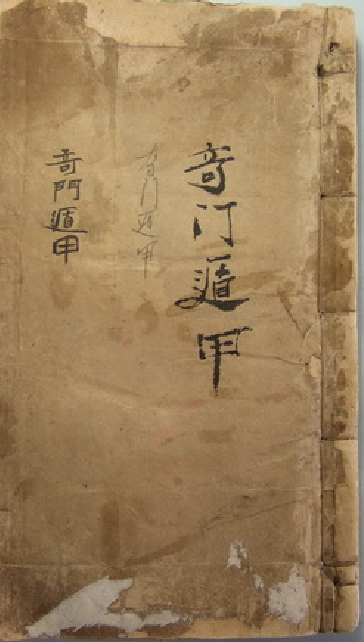 奇门遁甲
奇门遁甲
奇門遁甲